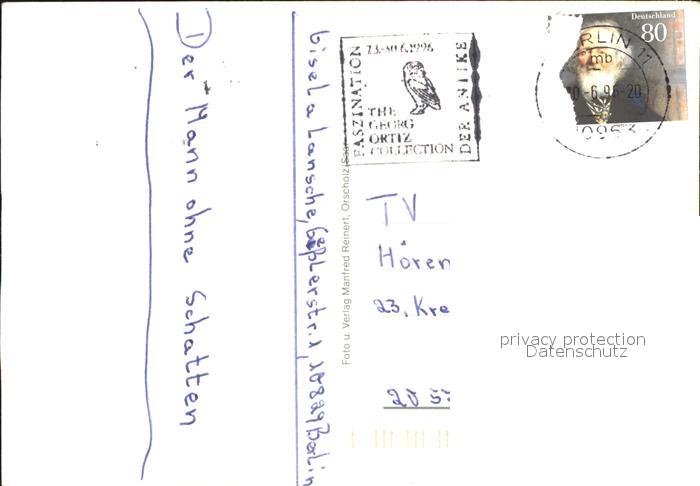 Der Mann ohne Schatten
Gisela Lansche, Geßlerstr. 1, 10829 Berlin
Foto u. Verlag Manfred Reinert, Orscholz/Saar
23.-30.6.1996
FASZINATION
THE
GEORG
ORTIZ
COLLECTION
DER ANTIKE
Deutschland
80
BERLIN 11
mb
-6.96-20
10963
TV
Hören
23, Kre
20 5
privacy protection
Datenschutz